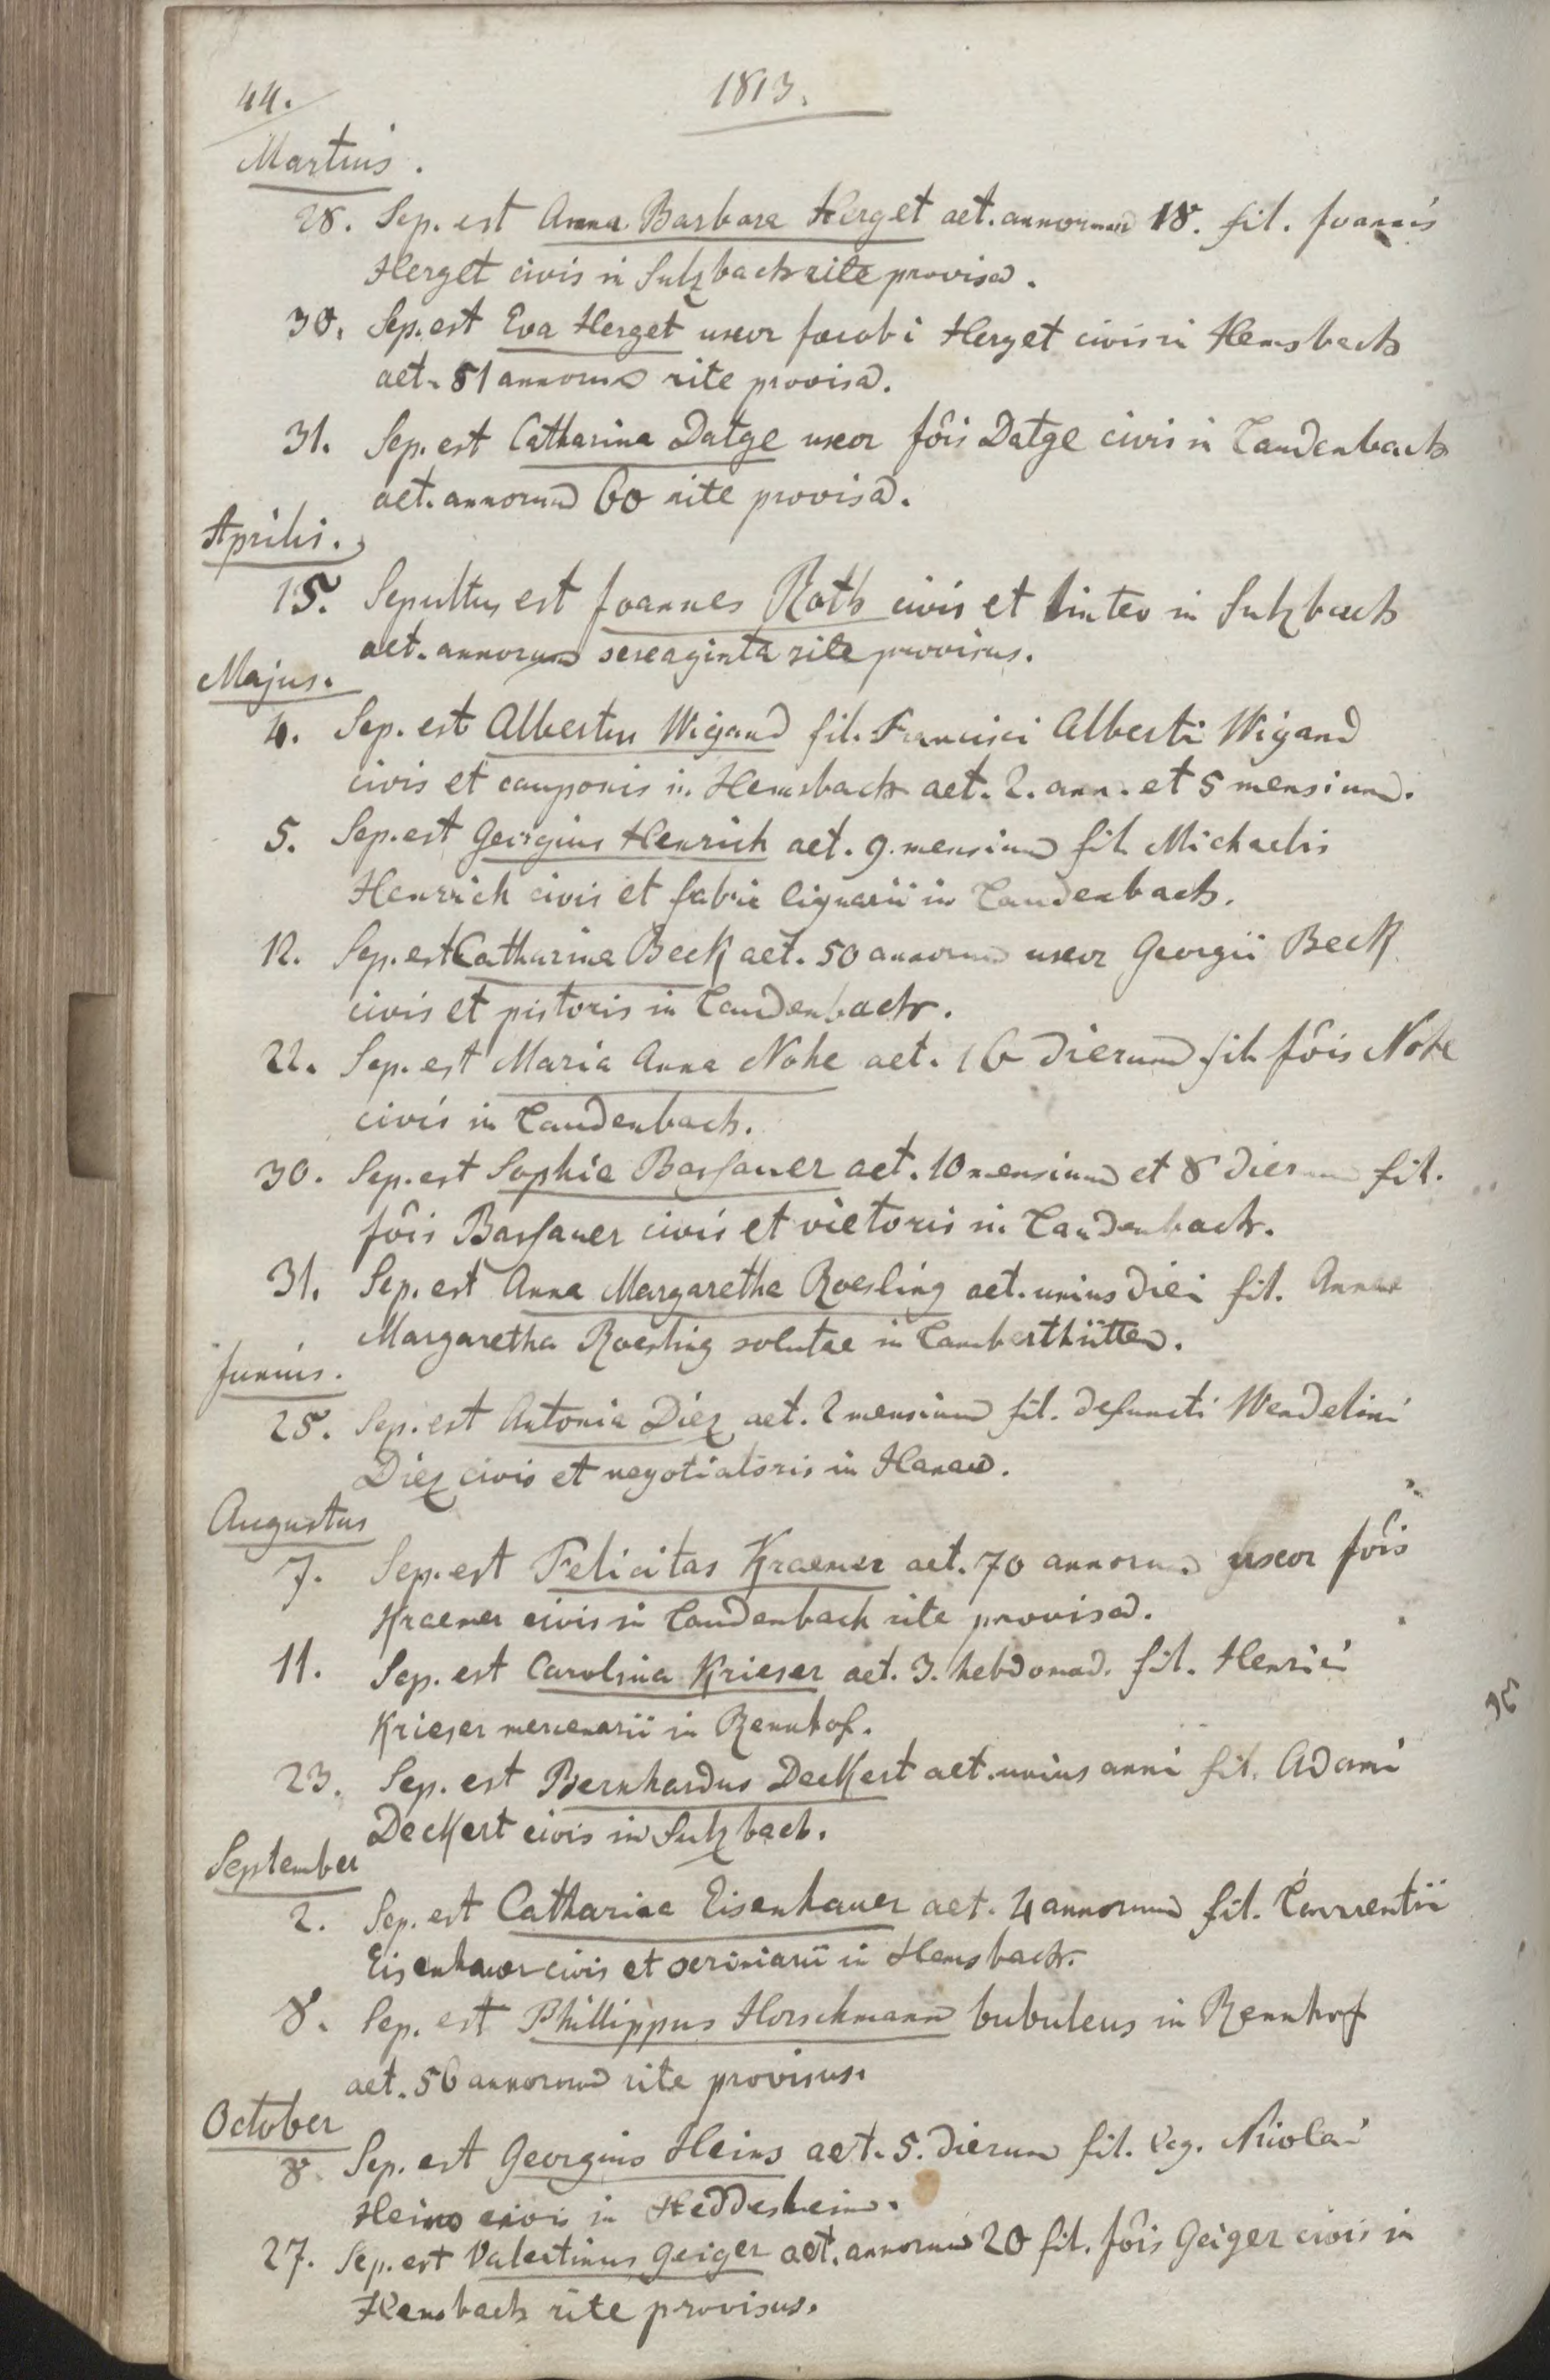 44.
1813.
Martius.
28. Sep. est Anna Barbara Herget aet. annorum 18. fil. Joannis
Herget civis in Sulzbach rite provisa.
30. Sep. est Eva Herget uxor Jacobi Herget civis in Hemsbach
aet. 51 annorum rite provisa.
31. Sep. est Catharina Datge uxor Jôis Datge civis in Laudenbach
aet. annorum 60 rite provisa.
Aprilis.
15. Sepultus est Joannes Roth civis et linteo in Sulzbach
aet. annorum sexaginta rite provisus.
Majus.
4. Sep. est Albertus Wigand fil. Francisci Alberti Wigand
civis et cauponis in Hemsbach aet. 2. ann. et 5 mensium.
5. Sep. est Georgius Henrich aet. 9. mensium fil. Michaelis
Henrich civis et fabri lignarii in Laudenbach.
12. Sep. est Catharina Beck aet. 50 annorum uxor Georgii Beck
civis et pistoris in Laudenbach.
22. Sep. est Maria Anna Nohe aet. 16 dierum fil. Jôis Nohe
civis in Laudenbach.
30. Sep. est Sophia Bassauer aet. 10 mensium et 8 dierum fil.
Jôis Bassauer civis et vietoris in Laudenbach.
31. Sep. est Anna Margaretha Roesling aet. unius diei fil. Annae
Margaretha Roesling solutae in Lamberthütten.
Junius.
25. Sep. est Antonia Diez aet. 2 mensium fil. defuncti Wendelini
Diez civis et negotiatoris in Hanau.
Augustus
7. Sep. est Felicitas Kraemer aet. 70 annorum uxor Jôis
Kraemer civis in Laudenbach rite provisa.
11. Sep. est Carolina Krieser aet. 3. hebdomad. fil. Henrici
Krieser mercenarii in Rennhof.
23. Sep. est Bernhardus Deckert aet. unius anni fil. Adami
Deckert civis in Sulzbach.
September
2. Sep. est Catharina Eisenhauer aet. 4 annorum fil. Laurentii
Eisenhauer civis et scriniarii in Hemsbach.
8. Sep. est Phillippus Horschmann bubulcus in Rennhof
aet. 56 annorum rite provisus.
October
8. Sep. est Georgius Heins aet. 5. dierum fil. leg. Nicolai
Heins civis in Heddesheim.
27. Sep. est Valentinus Geiger aet. annorum 20 fil. Jôis Geiger civis in
Hemsbach rite provisus.